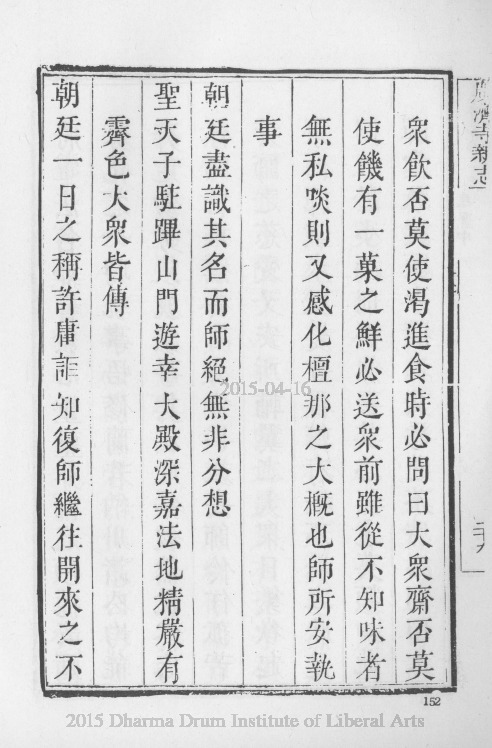 廣濟寺新志
眾飮否莫使渴進食時必問曰大眾齋否莫
使饑有一菓之鮮必送眾前雖從不知味者
無私啖則又感化檀那之大槪也師所安執
事
朝廷盡識其名而師絕無非分想
聖天子駐蹕山門遊幸大殿深嘉法地精嚴有
霽色大眾皆傳
朝廷一日之稱許庸詎知復師繼往開來之不
2015-04-16
152
2015 Dharma Drum Institute of Liberal Arts